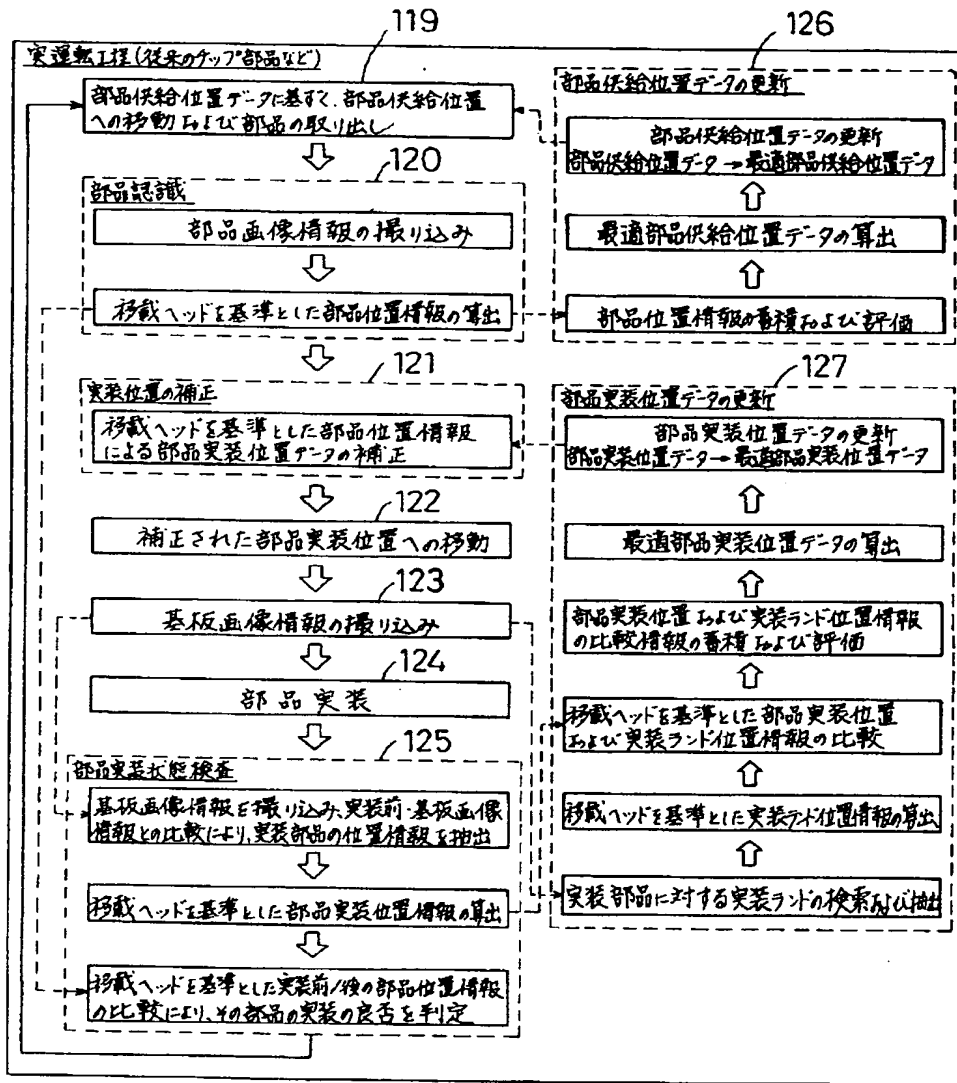 119
126
実運転工程(従来のチップ部品など)
部品供給位置データに基ずく、部品供給位置
への移動および部品の取り出し
120
部品認識
部品画像情報の撮り込み
移載ヘッドを基準とした部品位置情報の算出
121
実装位置の補正
移載ヘッドを基準とした部品位置情報
による部品実装位置データの補正
122
補正された部品実装位置への移動
123
基板画像情報の撮り込み
124
部品実装
125
部品実装状態検査
基板画像情報を撮り込み、実装前・基板画像
情報との比較により、実装部品の位置情報を抽出
移載ヘッドを基準とした部品実装位置情報の算出
移載ヘッドを基準とした実装前/後の部品位置情報
の比較により、その部品の実装の良否を判定
部品供給位置データの更新
部品供給位置データの更新
部品供給位置データ→最適部品供給位置データ
最適部品供給位置データの算出
部品位置情報の蓄積および評価
127
部品実装位置データの更新
部品実装位置データの更新
部品実装位置データ→最適部品実装位置データ
最適部品実装位置データの算出
部品実装位置および実装ランド位置情報
の比較情報の蓄積および評価
移載ヘッドを基準とした部品実装位置
および実装ランド位置情報の比較
移載ヘッドを基準とした実装ランド位置情報の算出
実装部品に対する実装ランドの検索および抽出